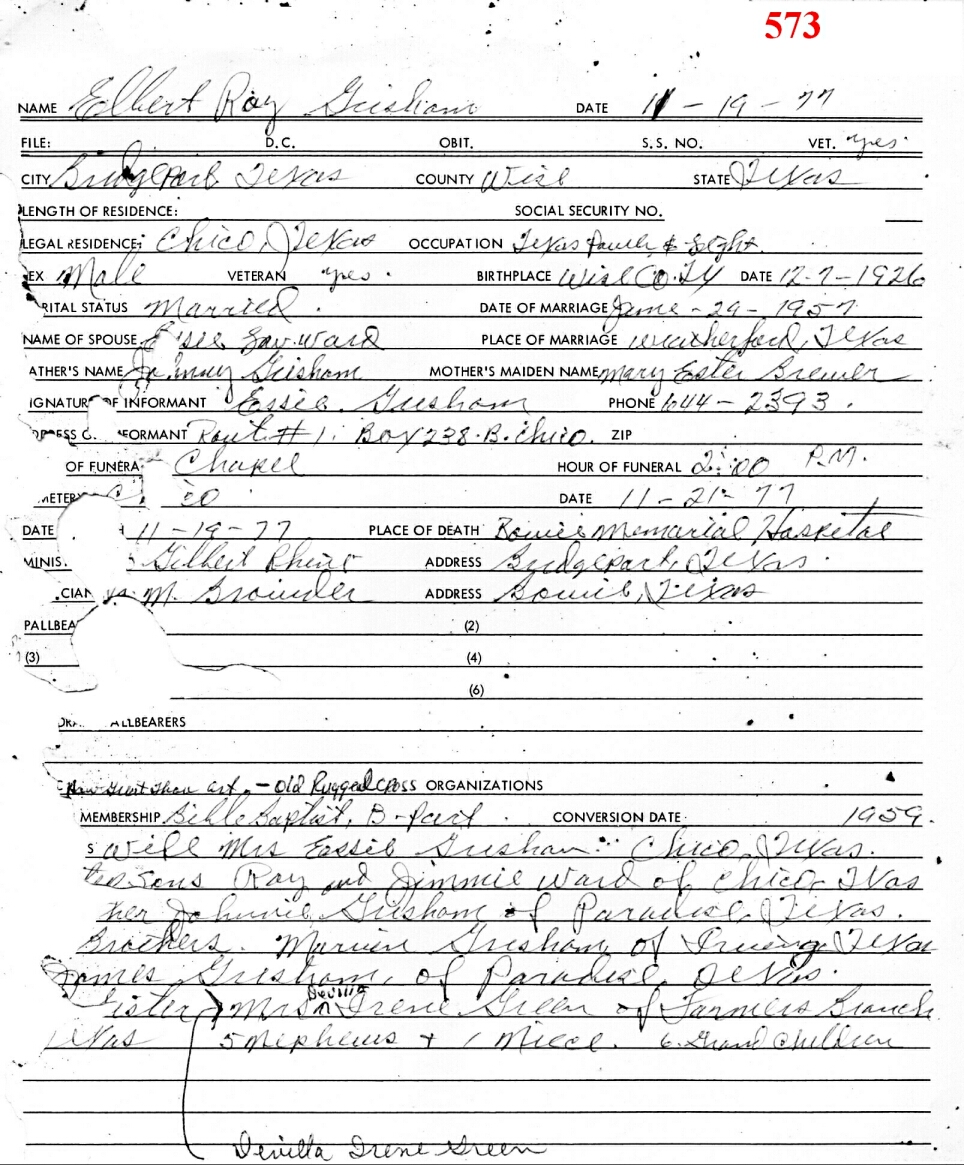 573
NAME Elbert Ray Grisham DATE 11-19-77
FILE: D.C. OBIT. S.S. NO. VET. yes.
CITY Bridgeport Texas COUNTY Wise STATE Texas
LENGTH OF RESIDENCE: SOCIAL SECURITY NO.
LEGAL RESIDENCE: Chico, Texas OCCUPATION Texas Power & Light.
EX Male VETERAN yes. BIRTHPLACE Wise Co. TX DATE 12-7-1926
RITAL STATUS Married. DATE OF MARRIAGE June-29-1957
NAME OF SPOUSE Essie Ward PLACE OF MARRIAGE Weatherford, Texas
ATHER'S NAME Johnny Grisham MOTHER'S MAIDEN NAME Mary Ester Brewer
IGNATURE OF INFORMANT Essie Grisham PHONE 644-2393.
DRESS O FORMANT Route #1. Box 238.B. Chico. ZIP
OF FUNERA Chapel HOUR OF FUNERAL 2:00 P.M.
METERY C ico DATE 11-21-77
DATE H 11-19-77 PLACE OF DEATH Bowie Memorial Hospital
MINIS. Gilbert ADDRESS Bridgeport, Texas.
CIAN M. Browder ADDRESS Bowie, Texas
PALLBEA (2)
(3) (4)
(6)
ORA ALLBEARERS
How Great Thou art - Old Rugged Cross ORGANIZATIONS
MEMBERSHIP Bible Baptist, B-port. CONVERSION DATE 1959.
S wife Mrs Essie Grisham. Chico, Texas.
tep Sons Ray and Jimmie Ward of Chico Texas
ther Johnnie Grisham of Paradise, Texas.
Brothers. Grisham, of Irving, Texas
James Grisham, of Paradise, Texas.
Sister Mrs Irene Green of Farmers Branch
exas 5 Nephews + 1 Niece. 6. Grand Children
Devilla Irene Green